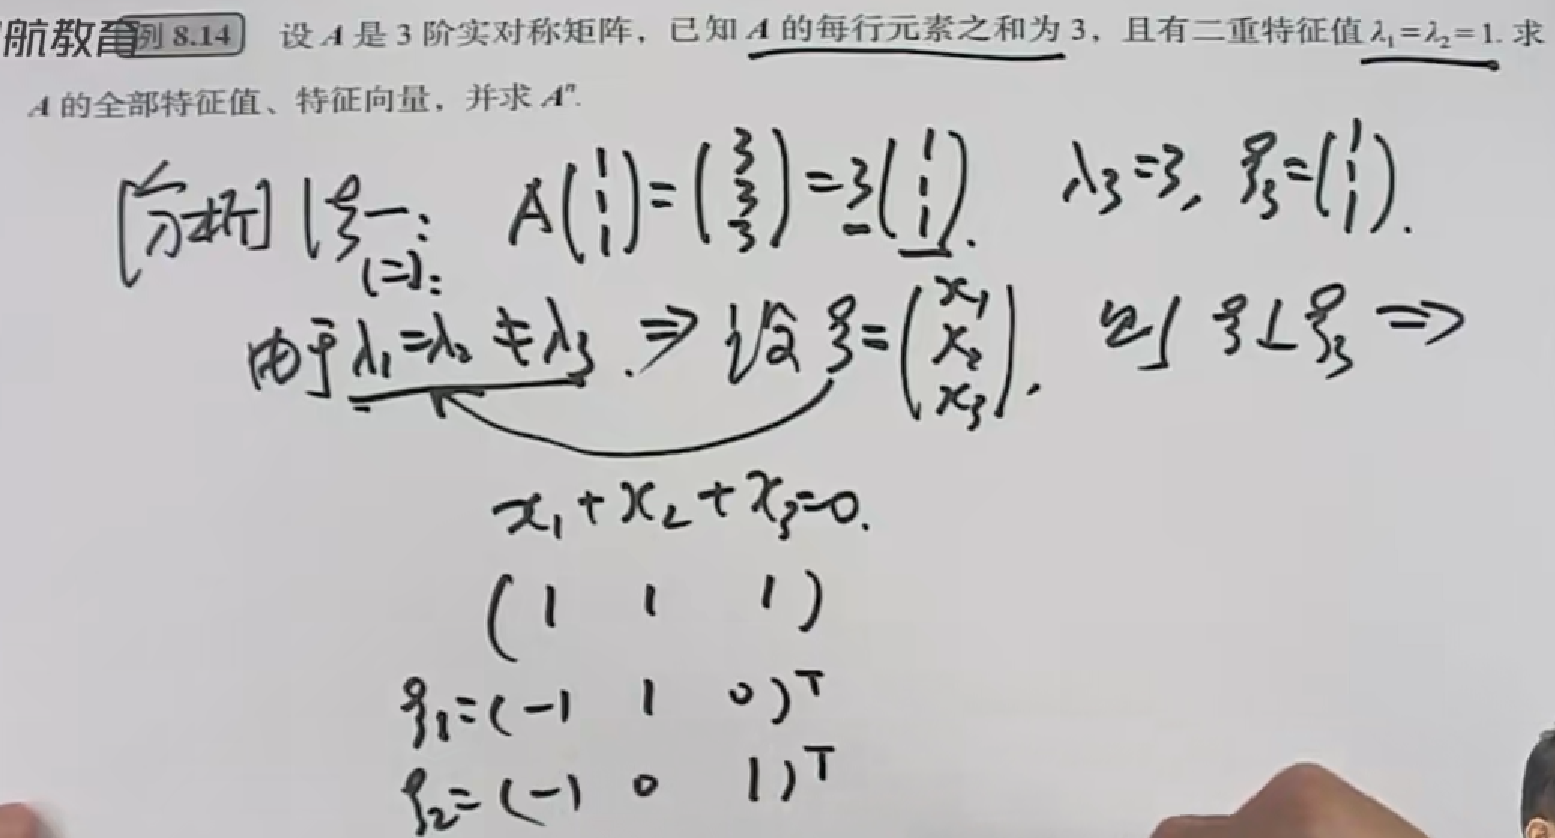 航教育 例 8.14 设 A 是 3 阶实对称矩阵，已知 A 的每行元素之和为 3，且有二重特征值 λ₁=λ₂=1. 求
A 的全部特征值、特征向量，并求 Aⁿ.
[分析] 1°: A(1 1 1)=(3 3 3)=3(1 1 1). λ₃=3, ξ₃=(1 1 1).
(二):
由于 λ₁=λ₂≠λ₃. ⇒ 设 ξ=(x₁ x₂ x₃), 则 ξ⊥ξ₃ ⇒
x₁+x₂+x₃=0.
(1 1 1)
ξ₁=(-1 1 0)ᵀ
ξ₂=(-1 0 1)ᵀ